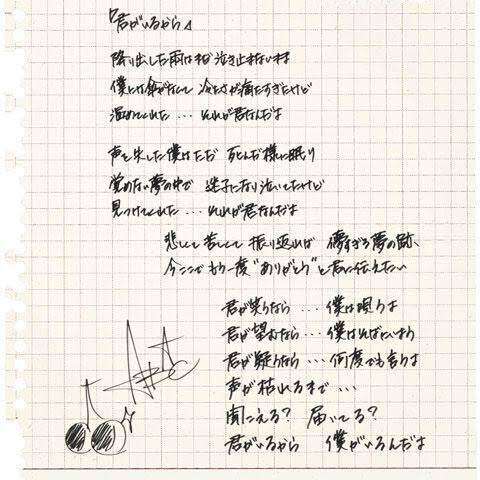 『君がいるから』
降り出した雨はまだ泣き止まないまま
僕には傘がなくて 冷たさが痛たすぎたけど
温めてくれた…それが君なんだよ
声を失した僕はただ 死んだ様に眠り
覚めない夢の中で 迷子になり泣いてたけど
見つけてくれた…それが君なんだよ
悲しくて苦しくて 振り返れば 儚すぎる夢の跡、
今ここでもう一度“ありがとう”と君に伝えたい
君が笑うなら…僕は唄うよ
君が望むなら…僕はそばにいよう
君が疑うなら…何度でも言うよ
声が枯れるまで…
聞こえる? 届いてる?
君がいるから 僕がいるんだよ